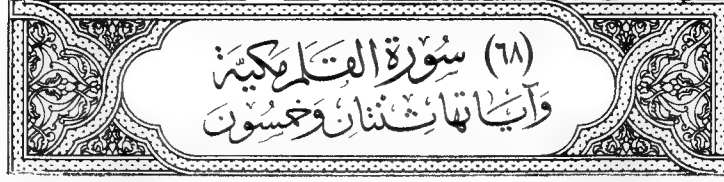 (٦٨) سُورَةُ القَلَمِ مَكِيَّة
وَآيَاتُهَا ثِنْتَانِ وَخَمْسُون